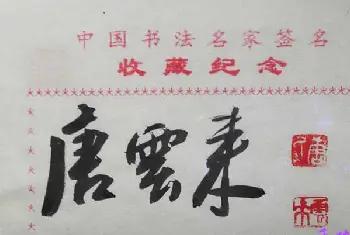 中国书法名家签名
收藏纪念
唐雲来